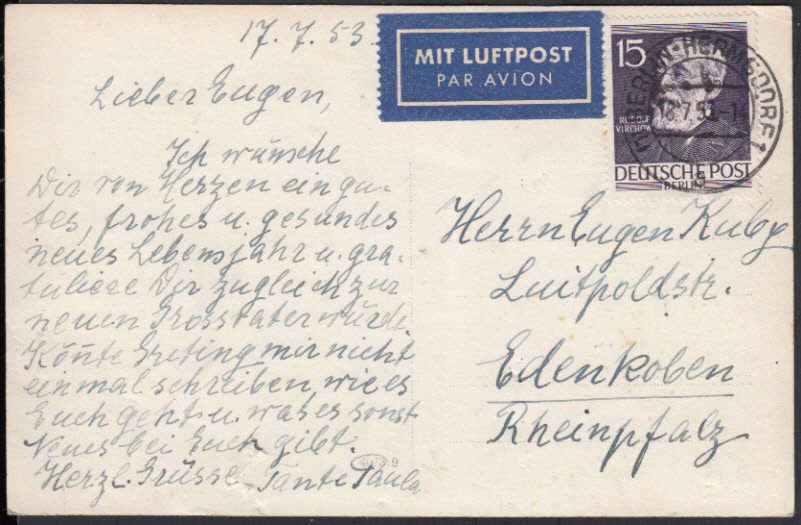 17. 7. 53.
MIT LUFTPOST
PAR AVION
15
RUDOLF
VIRCHOW
DEUTSCHE POST
BERLIN
BERLIN-HERMSDORF 1
Lieber Eugen,
Ich wünsche
Dir von Herzen ein gu-
tes, frohes u. gesundes
neues Lebensjahr u. gra-
tuliere Dir zugleich zur
neuen Grossvaterwürde.
Kön̄te Greting mir nicht
einmal schreiben, wie es
Euch geht u. was es sonst
Neues bei Euch gibt.
Herzl. Grüsse Tante Paula
Herrn Eugen Kuby
Luitpoldstr.
Edenkoben
Rheinpfalz